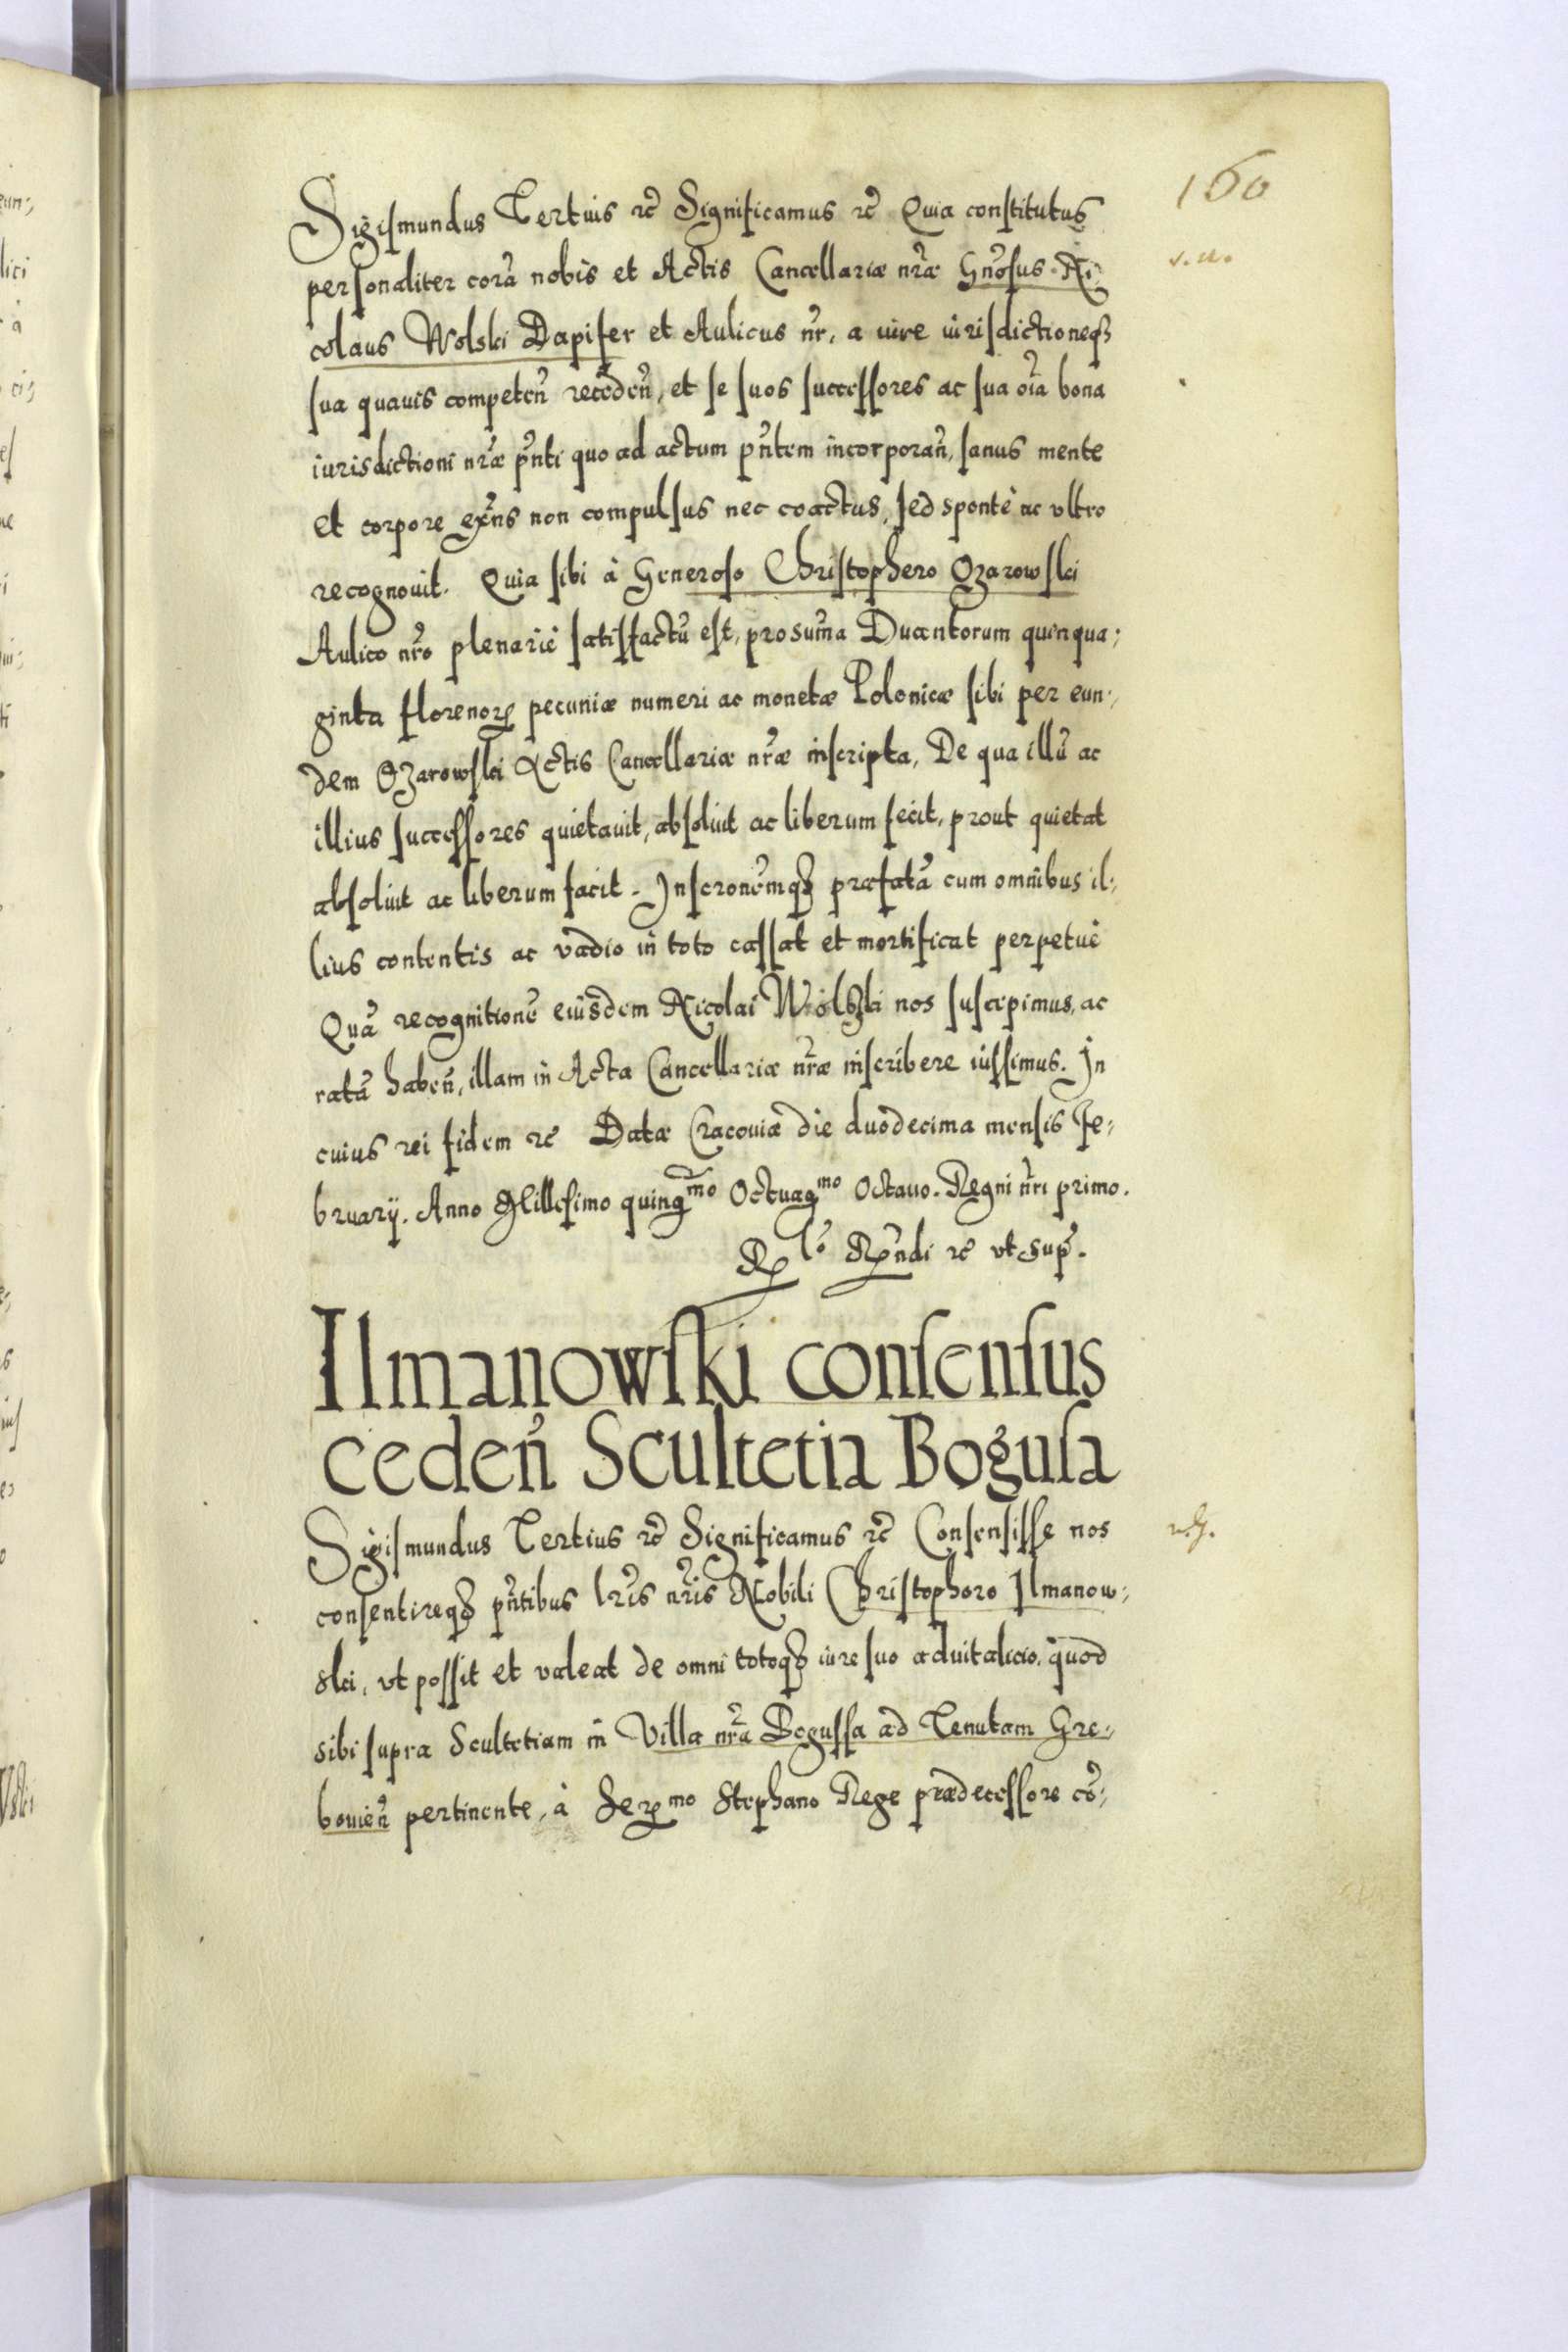 160
Sigismundus Tertius etc̃ Significamus etc̃ Quia constitutus
personaliter corã nobis et Actis Cancellariæ nr̃æ Gnõsus Ni
s. u.
colaus Wolski Dapifer et Aulicus nr̃, a iure iurisdictioneq3
sua quauis competeñ recedeñ, et se suos successores ac sua oĩa bona
iurisdictioni nr̃æ pñti quo ad actum pñtem incorporañ, sanus mente
et corpore exñs non compulsus nec coactus, sed spontè ac vltro
recognouit. Quia sibi à Generoso Christophero Ozarowski
Aulico nr̃o plenariè satisfactũ est, pro sum̃a Ducentorum quinqua;
ginta florenorꝝ pecuniæ numeri ac monetæ Polonicæ sibi per eun;
dem Ozarowski Actis Cancellariæ nr̃æ inscripta, De qua illũ ac
illius successores quietauit, absoluit ac liberum fecit, prout quietat
absoluit ac liberum facit. Inscronẽmq3 præfatã cum omnibus il;
lius contentis ac vadio in toto cassat et mortificat perpetuè
Quã recognitionẽ eiusdem Nicolai Wolski nos suscepimus, ac
ratã habeñ, illam in Acta Cancellariæ nr̃æ inscribere iussimus. In
cuius rei fidem etc̃ Datæ Cracouiæ die duodecima mensis Fe;
bruarij. Anno Millesimo quingmo Octuagmo Octauo. Regni nr̃i primo.
Rlõ Rñdi etc̃ vt sup̃.
Ilmanowski consensus
cedeñ Scultetia Bogusa
Sigismundus Tertius etc̃ Significamus etc̃ Consensisse nos
consentireq3 pñtibus lr̃is nr̃is Nobili Christophoro Ilmanow;
ski, vt possit et valeat de omni totoq3 iure suo aduitalicio, quod
sibi supra Scultetiam in Villa nr̃a Bogussa ad Tenutam Gre;
bouieñ pertinente, à Serꝝmo Stephano Rege prædecessore cõ;